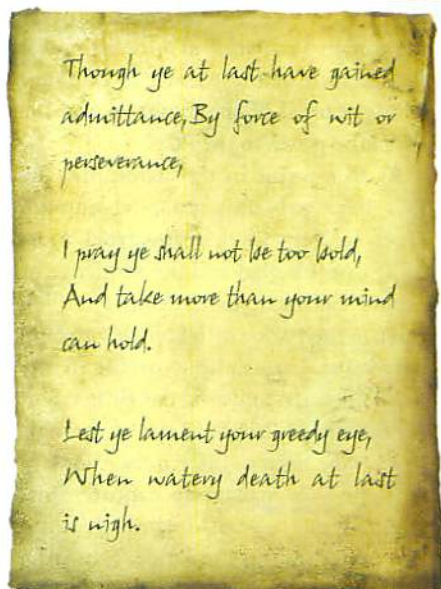 Though ye at last have gained
admittance, By force of wit or
perseverance,
I pray ye shall not be too bold,
And take more than your mind
can hold.
Lest ye lament your greedy eye,
When watery death at last
is nigh.